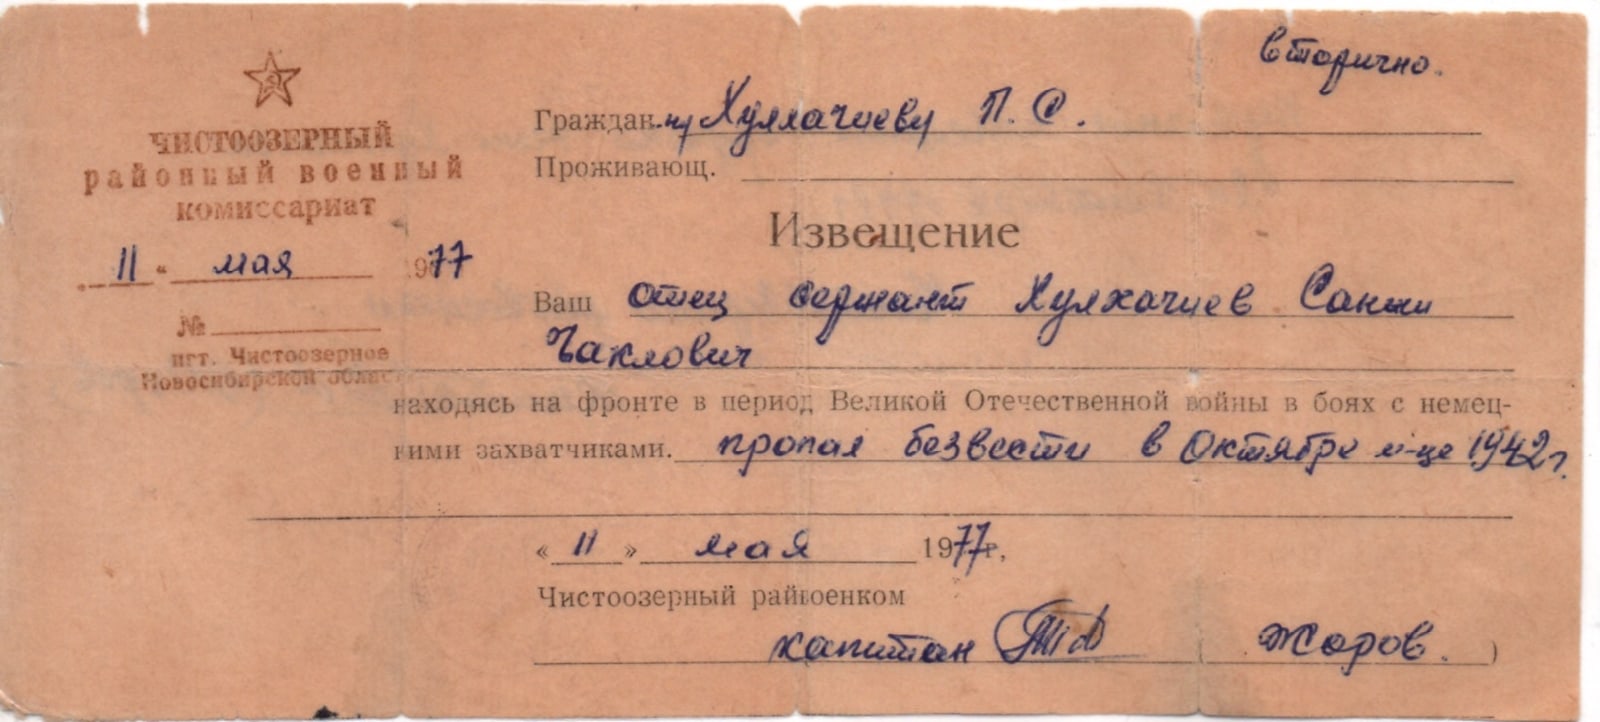 вторично.
ЧИСТООЗЕРНЫЙ
районный военный
комиссариат
11 " мая 1977
№
пгт. Чистоозерное
Новосибирской област
Граждан.ну Хулхачиеву П. С.
Проживающ.
Извещение
Ваш отец сержант Хулхачиев Санжи
Чаклович
находясь на фронте в период Великой Отечественной войны в боях с немец-
кими захватчиками. пропал безвести в Октябре м-це 1942г.
« 11 » мая 1977г.
Чистоозерный райвоенком
капитан Жаров. )